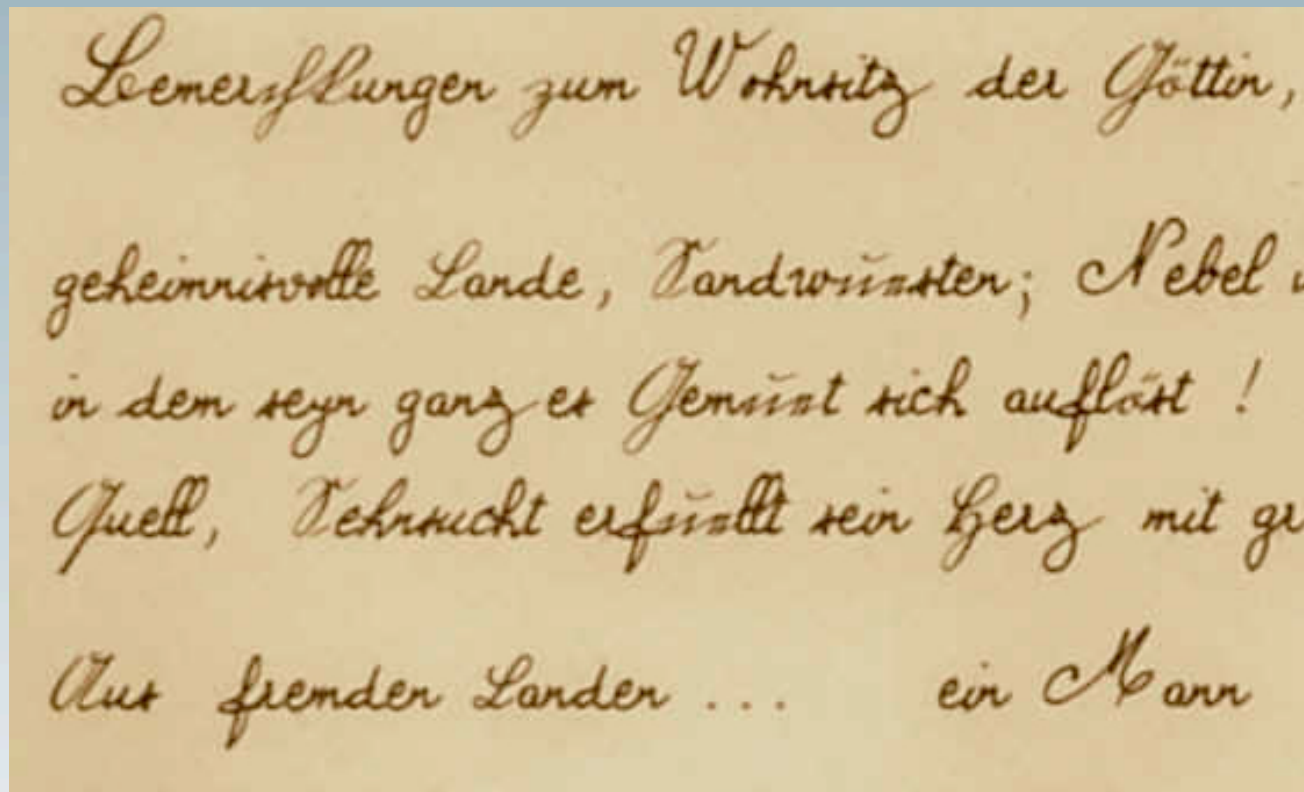 Bemerkungen zum Wohnsitz der Göttin,
geheimnisvolle Lande, Sandwüesten; Nebel
in dem seyn ganz es Gemüet sich auflöst !
Quell, Sehnsucht erfüellt sein Herz mit gr
Aus fremden Landen ... ein Mann